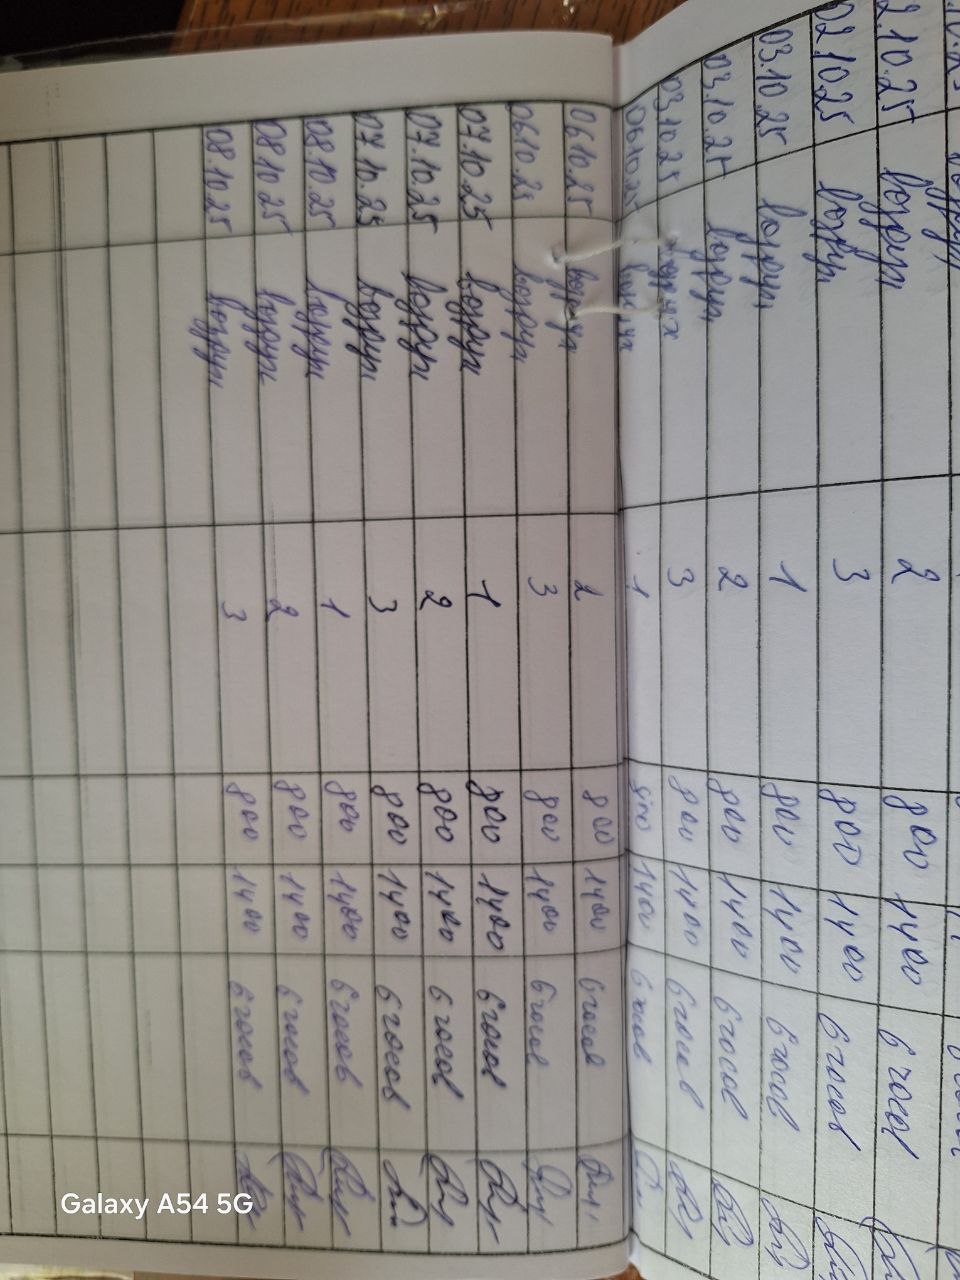 2 10.25 воздух 2 800 1400 6 часов
02 10.25 воздух 3 800 1400 6 часов
03.10.25 воздух 1 800 1400 6 часов
03.10.25 воздух 2 800 1400 6 часов
03.10.25 воздух 3 800 1400 6 часов
06.10.25 воздух 1 800 1400 6 часов
06.10.25 воздух 2 800 1400 6 часов
06.10.25 воздух 3 800 1400 6 часов
07.10.25 воздух 1 800 1400 6 часов
07.10.25 воздух 2 800 1400 6 часов
07.10.25 воздух 3 800 1400 6 часов
08.10.25 воздух 1 800 1400 6 часов
08.10.25 воздух 2 800 1400 6 часов
08.10.25 воздух 3 800 1400 6 часов
Galaxy A54 5G